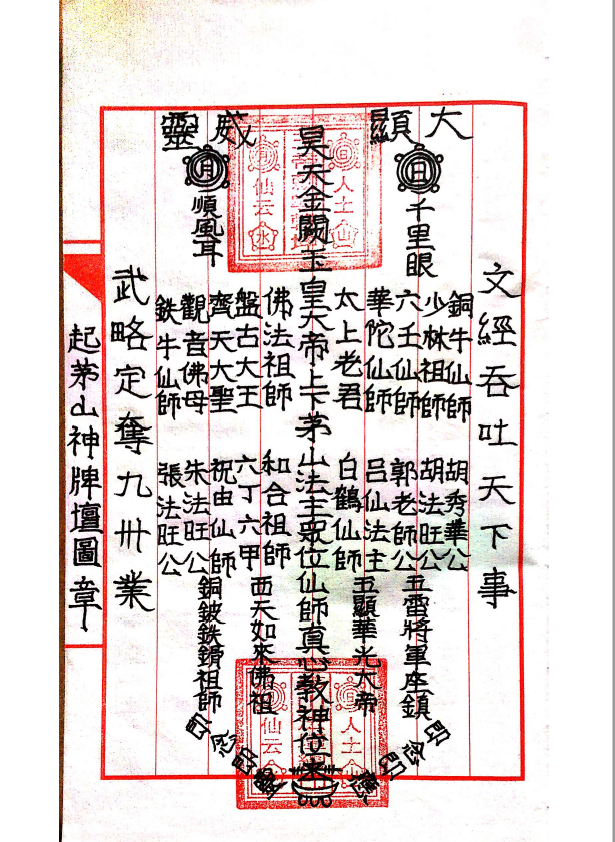 大顯威靈
文經吞吐天下事
日
千里眼
銅牛仙師
胡秀華公
少林祖師
胡法旺公
六壬仙師
郭老師公
五雷將軍座鎮
華陀仙師
呂仙法主
五顯華光大帝
太上老君
白鶴仙師
昊天金闕玉皇大帝上下茅山法主眾位仙師真心教神位
佛法祖師
和合祖師
西天如來佛祖
盤古大王
六丁六甲
齊天大聖
祝由仙師
銅鈹鉄鎖祖師
觀音佛母
朱法旺公
鉄牛仙師
張法旺公
月
順風耳
武略定奪九卅業
起茅山神牌壇圖章
人土
仙云
人土
仙云